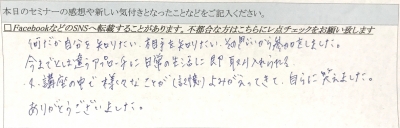 本日のセミナーの感想や新しい気付きとなったことなどをご記入ください。
□FacebookなどのSNSへ転載することがあります。不都合な方はこちらにレ点チェックをお願い致します
何だか自分を知りたい、相手を知りたい、その思いから参加をしました。
今までとは違うアプローチに日常の生活に即取り入れられる
講座の中で様々なことが(記憶)よみがえってきて、自らに笑えました。
ありがとうございました。